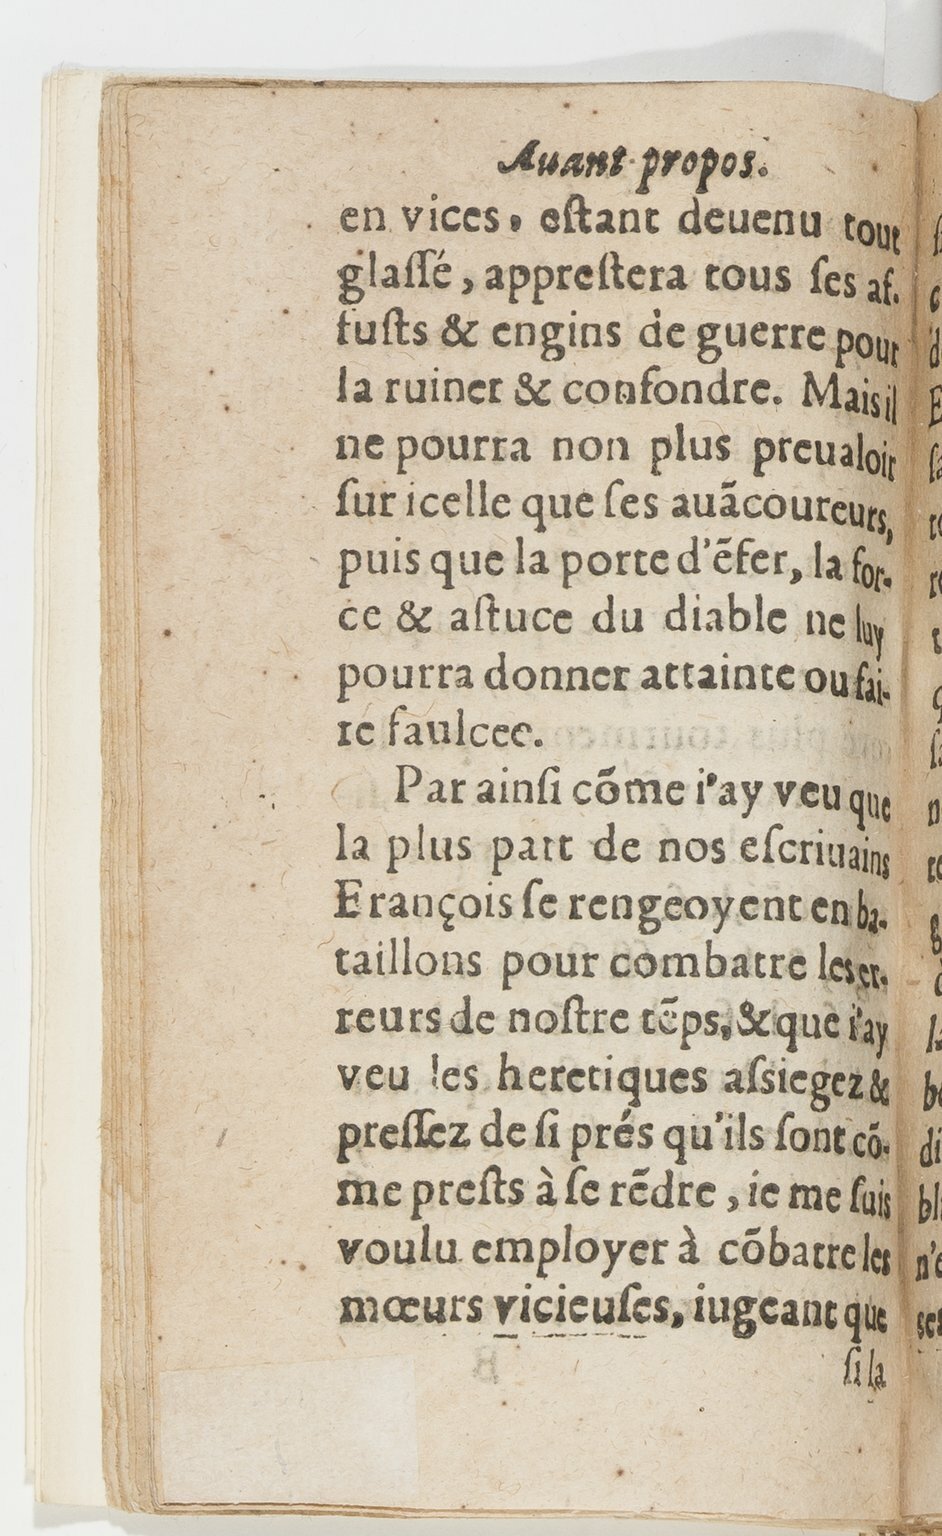 Auant-propos.
en vices, eſtant deuenu tout
glaſſé, appreſtera tous ſes af-
fuſts & engins de guerre pour
la ruiner & confondre. Mais il
ne pourra non plus preualoir
ſur icelle que ſes auãcoureurs,
puis que la porte d'ẽfer, la for-
ce & aſtuce du diable ne luy
pourra donner attainte ou fai-
re faulcee.
Par ainſi cõme i'ay veu que
la plus part de nos eſcriuains
François ſe rengeoyent en ba-
taillons pour combatre les er-
reurs de noſtre tẽps, & que i'ay
veu les heretiques aſsiegez &
preſſez de ſi prés qu'ils ſont cõ-
me preſts à ſe rẽdre, ie me ſuis
voulu employer à cõbatre les
mœurs vicieuſes, iugeant que
ſi la